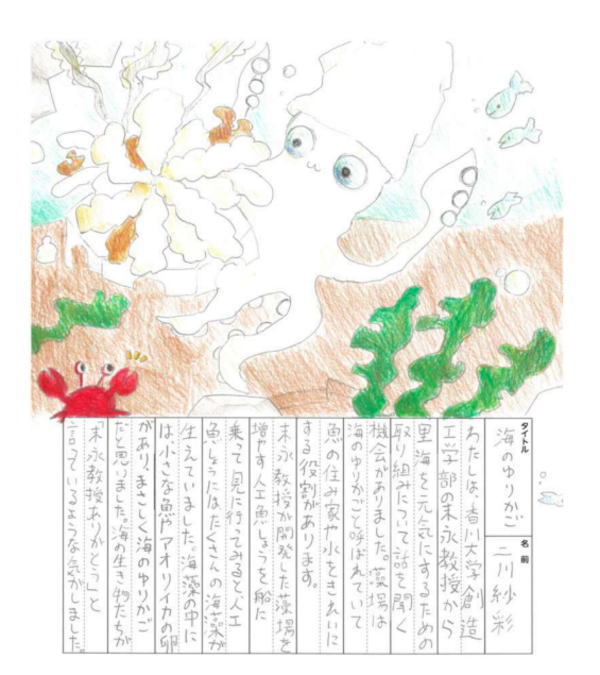 タイトル
海のゆりかご
名前
二川紗彩
わたしは、香川大学創造
工学部の末永教授から
里海を元気にするための
取り組みについて話を聞く
機会がありました。藻場は
海のゆりかごと呼ばれていて
魚の住み家や水をきれいに
する役割があります。
末永教授が開発した藻場を
増やす人工魚しょうを船に
乗って見に行ってみると人工
魚しょうにはたくさんの海藻が
生えていました。海藻の中に
は小さな魚やアオリイカの卵
があり、まさしく海のゆりかご
だと思いました。海の生き物たちが
「末永教授ありがとう」と
言っているような気がしました。